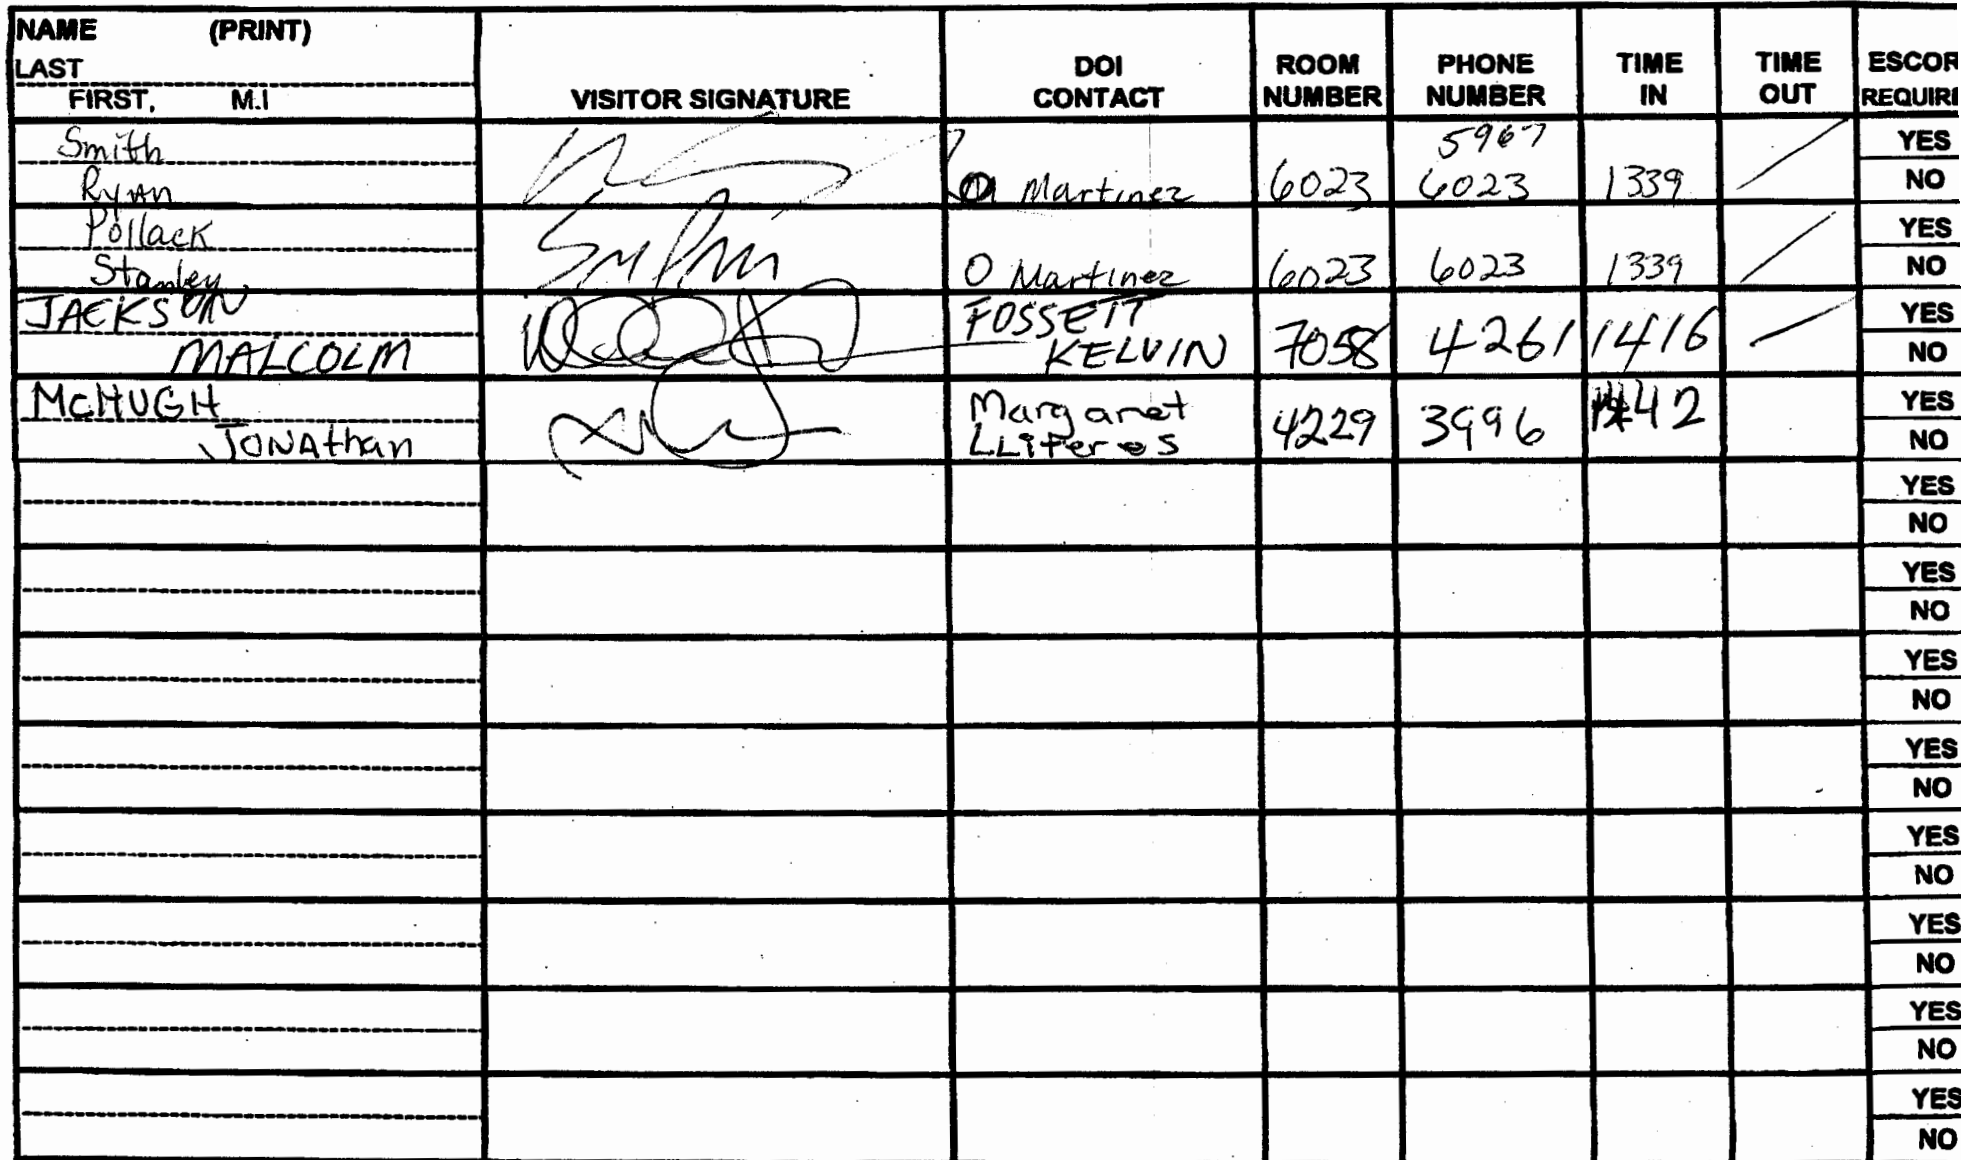 NAME (PRINT)
LAST
FIRST, M.I
VISITOR SIGNATURE
DOI
CONTACT
ROOM
NUMBER
PHONE
NUMBER
TIME
IN
TIME
OUT
ESCOR
REQUIRE
Smith
Ryan
Martinez
6023
5967
6023
1339
YES
NO
Pollack
Stanley
O Martinez
6023
6023
1339
YES
NO
JACKSON
MALCOLM
FOSSETT
KELVIN
7058
4261
1416
YES
NO
McHUGH
JONAthan
Margaret
LLiteros
4229
3996
YES
NO
YES
NO
YES
NO
YES
NO
YES
NO
YES
NO
YES
NO
YES
NO
YES
NO